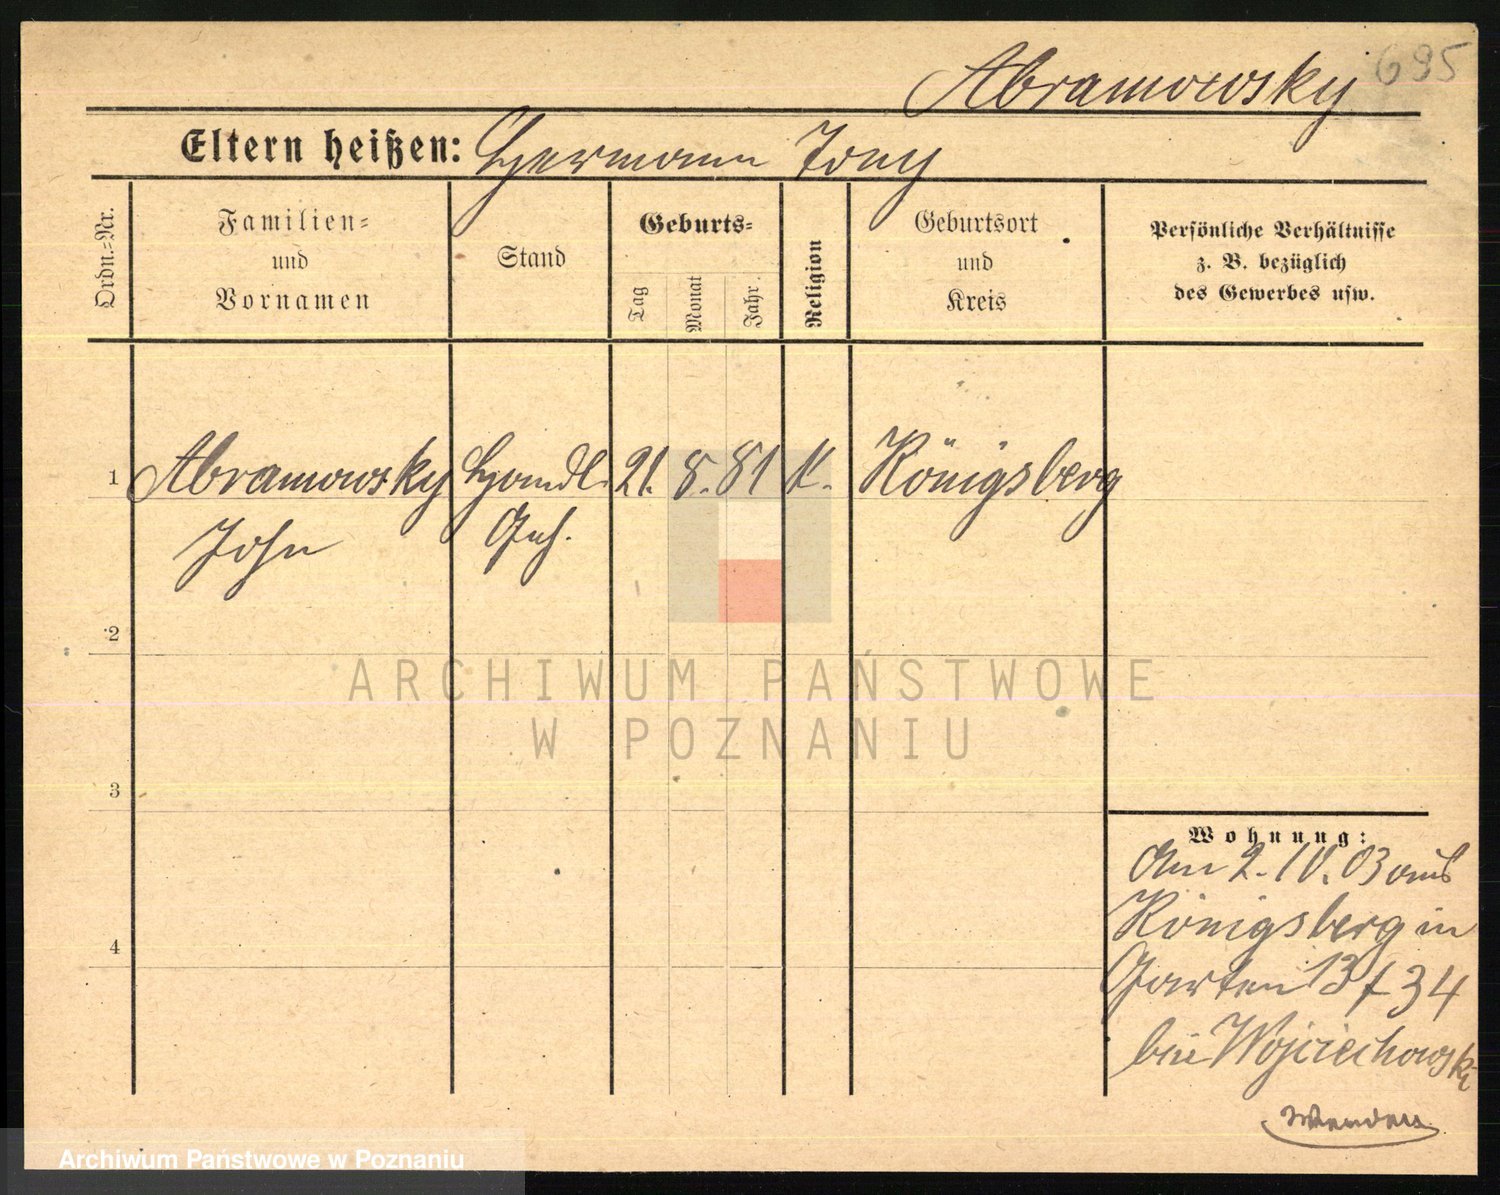 Abramowsky 695
Eltern heißen: Hermann Tony
Ordn.=Nr.
Familien=
und
Vornamen
Stand
Geburts=
Tag
Monat
Jahr.
Religion
Geburtsort
und
Kreis
Persönliche Verhältnisse
z. B. bezüglich
des Gewerbes usw.
1
Abramowsky
John
Handl.
Geh.
21.
8.
81
K.
Königsberg
2
3
4
ARCHIWUM PAŃSTWOWE
W POZNANIU
Wohnung:
Am 2. IV. 03 aus
Königsberg in
Garten 13 f 34
bei Wojciechowski
Wenden
Archiwum Państwowe w Poznaniu